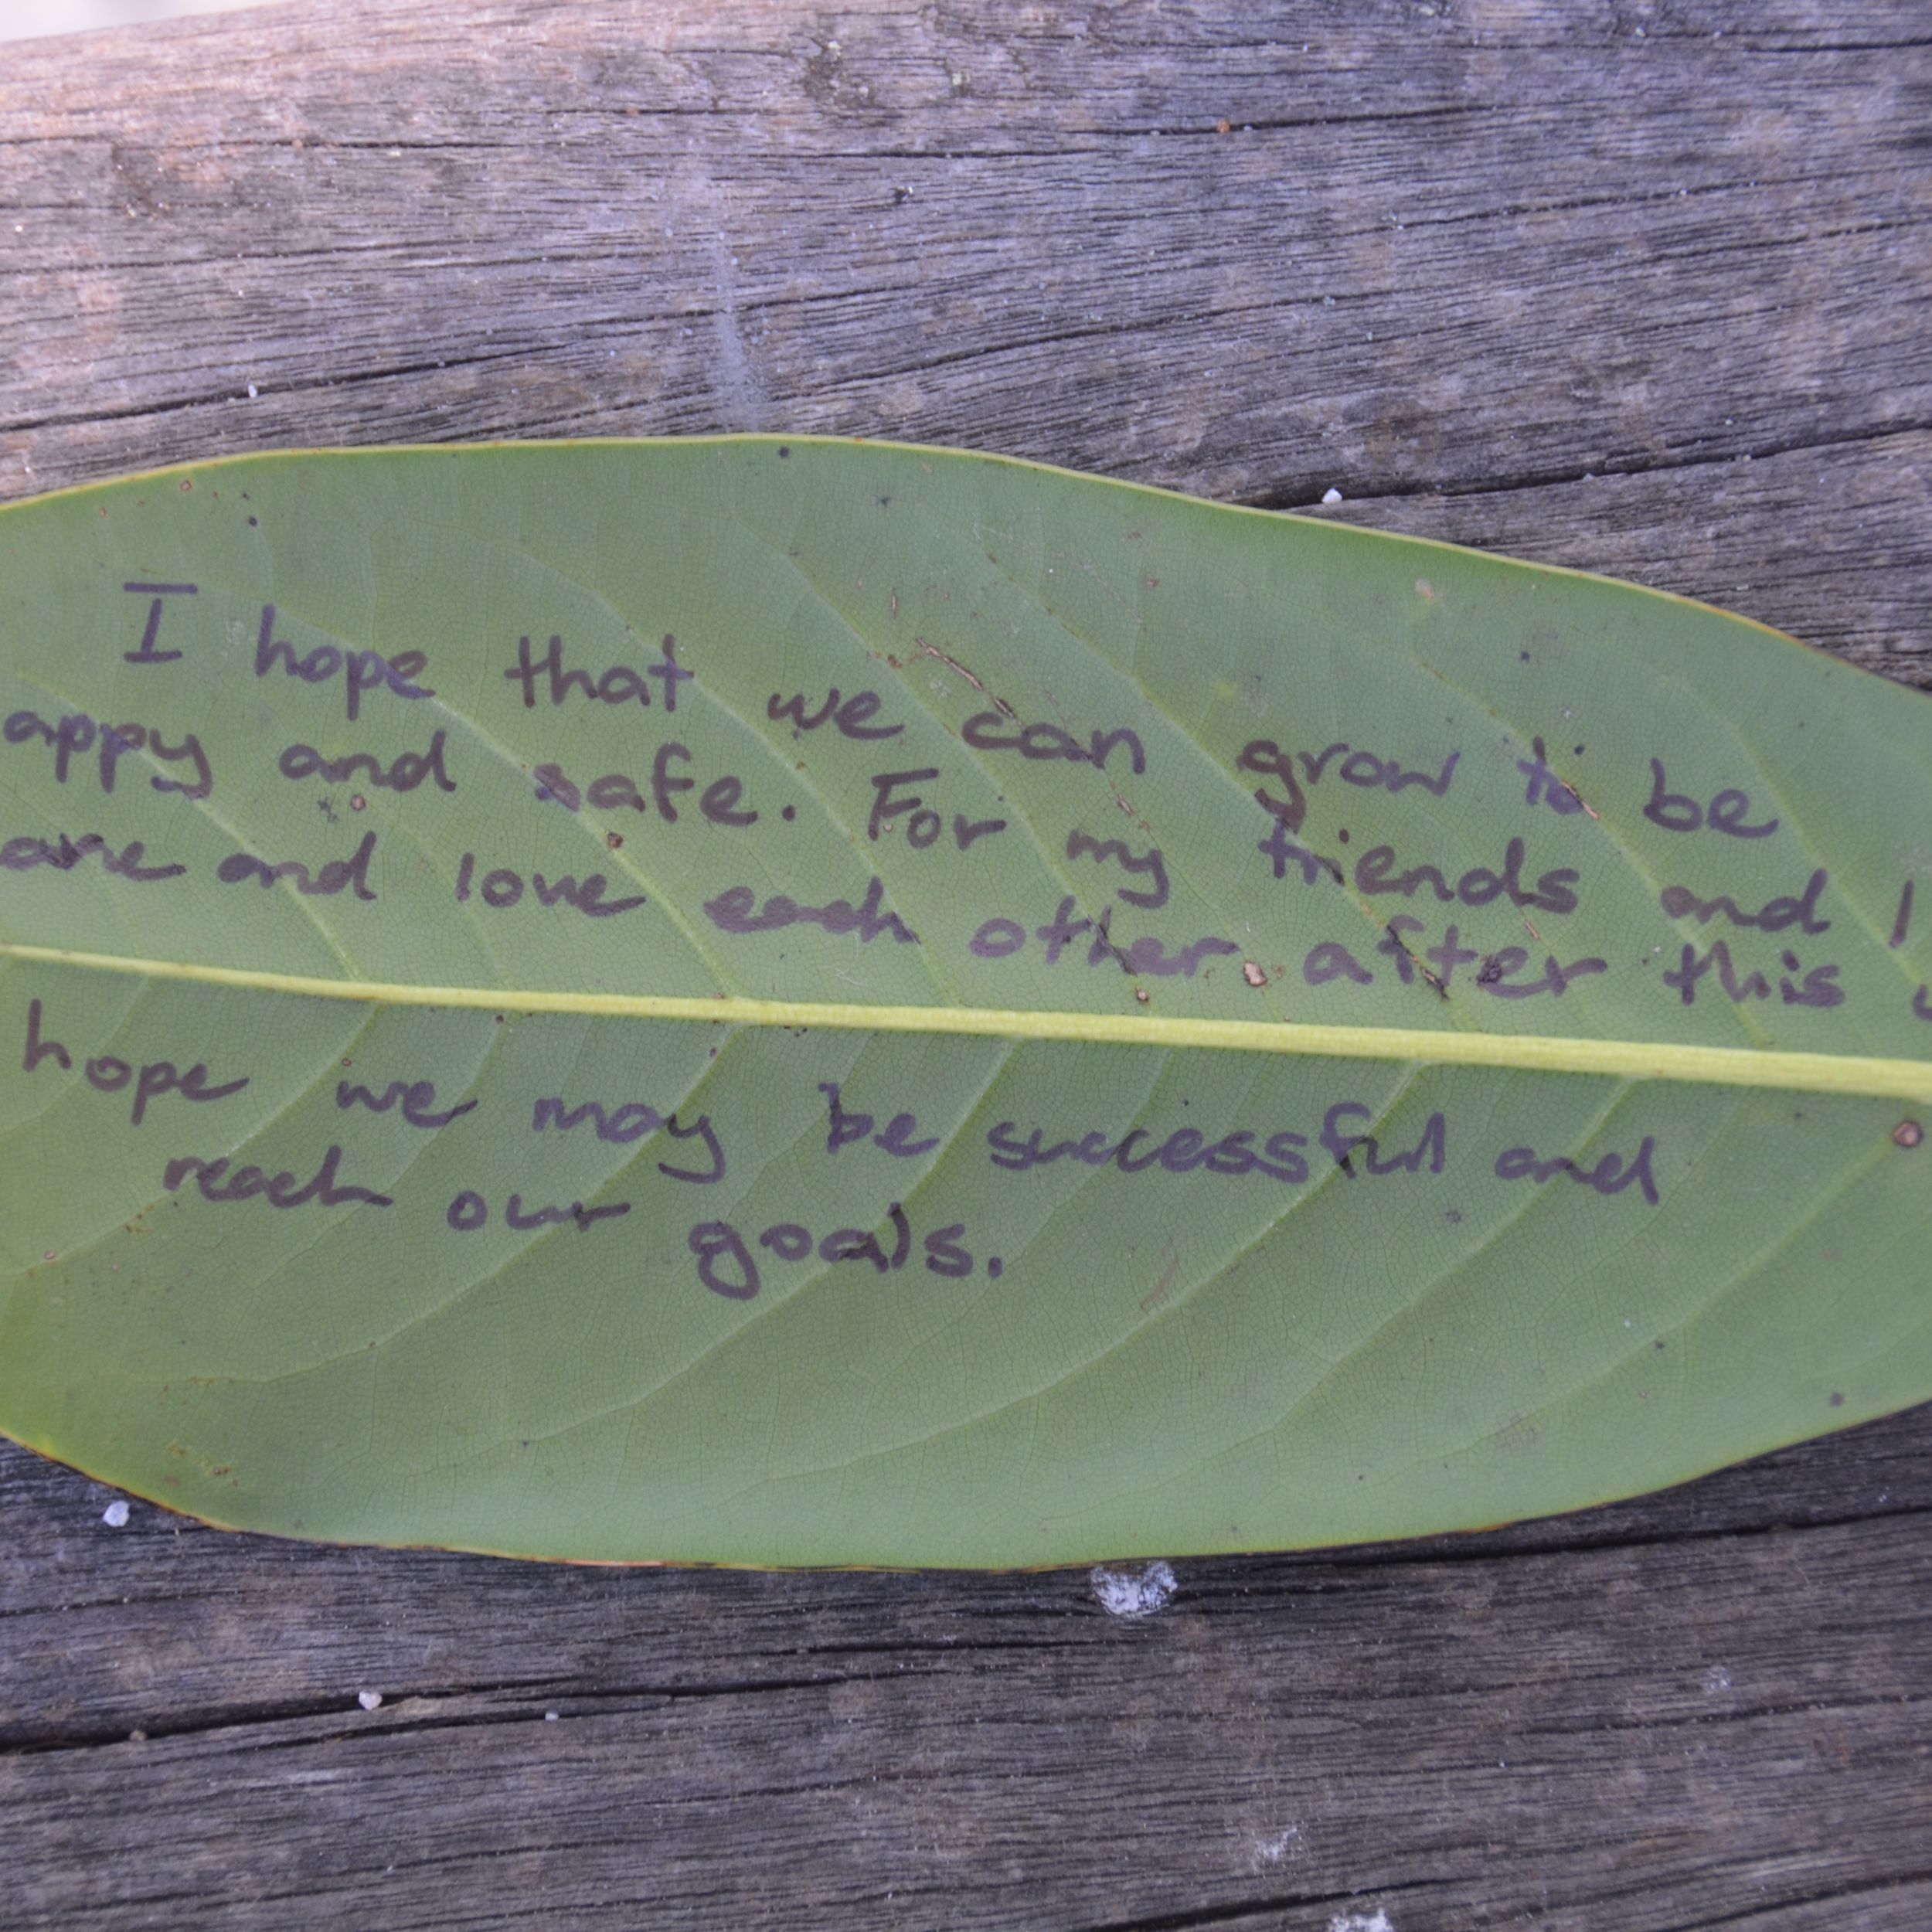 I hope that we can grow to be
appy and safe. For my friends and I
are and love each other after this
hope we may be successful and
reach our goals.